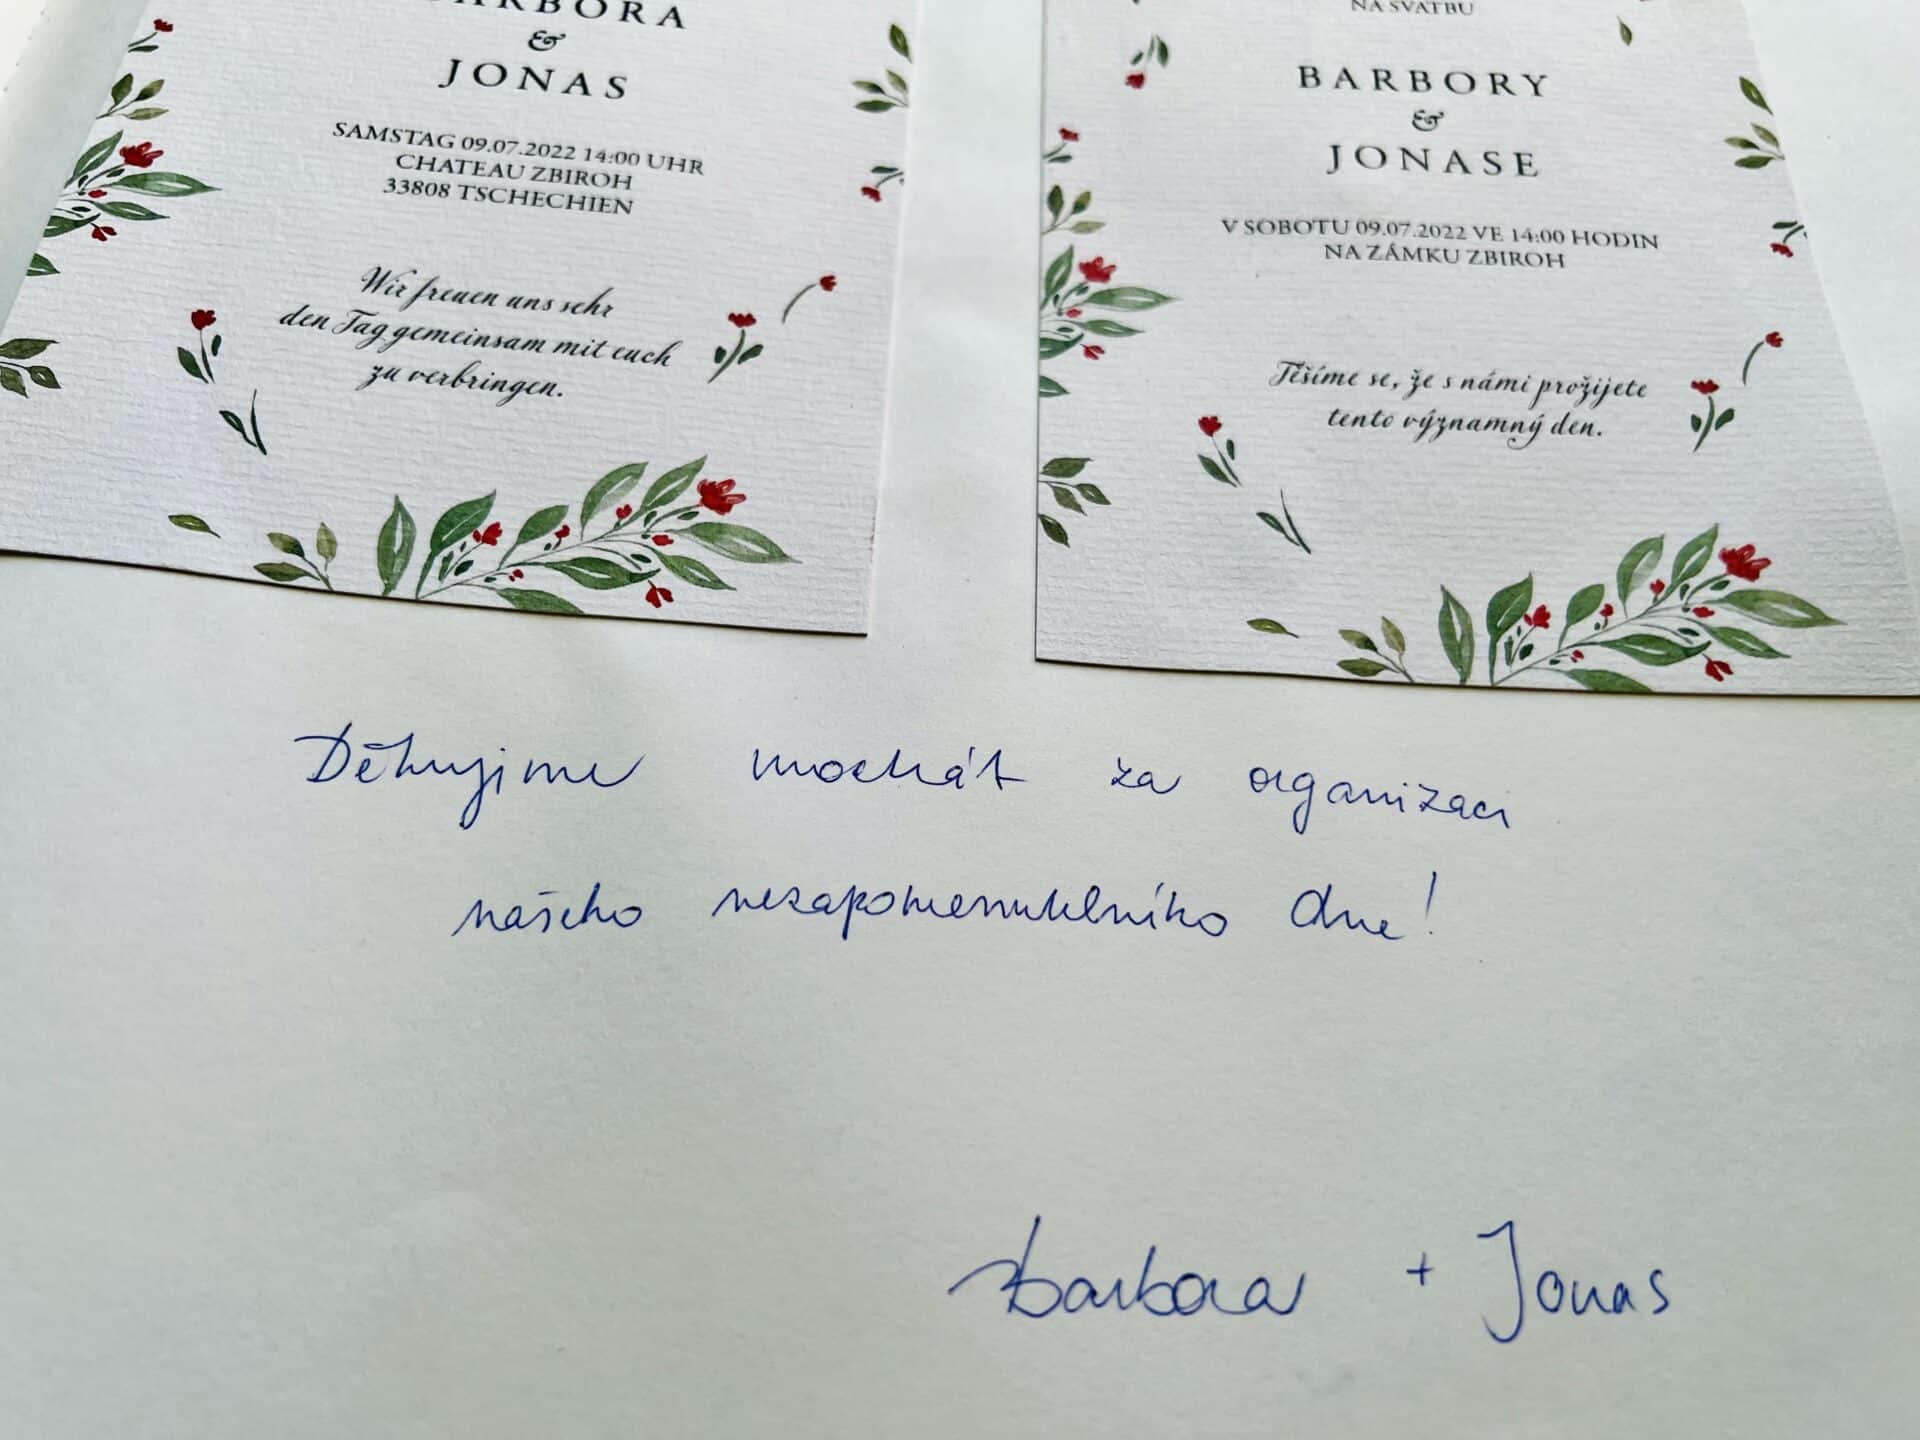 BARBORA
&
JONAS
SAMSTAG 09.07.2022 14:00 UHR
CHATEAU ZBIROH
33808 TSCHECHIEN
Wir freuen uns sehr
den Tag gemeinsam mit euch
zu verbringen.
NA SVATBU
BARBORY
&
JONASE
V SOBOTU 09.07.2022 VE 14:00 HODIN
NA ZÁMKU ZBIROH
Těšíme se, že s námi prožijete
tento významný den.
Děkujime mockrát za organizaci
našeho nezapomenutelného dne!
Barbora + Jonas